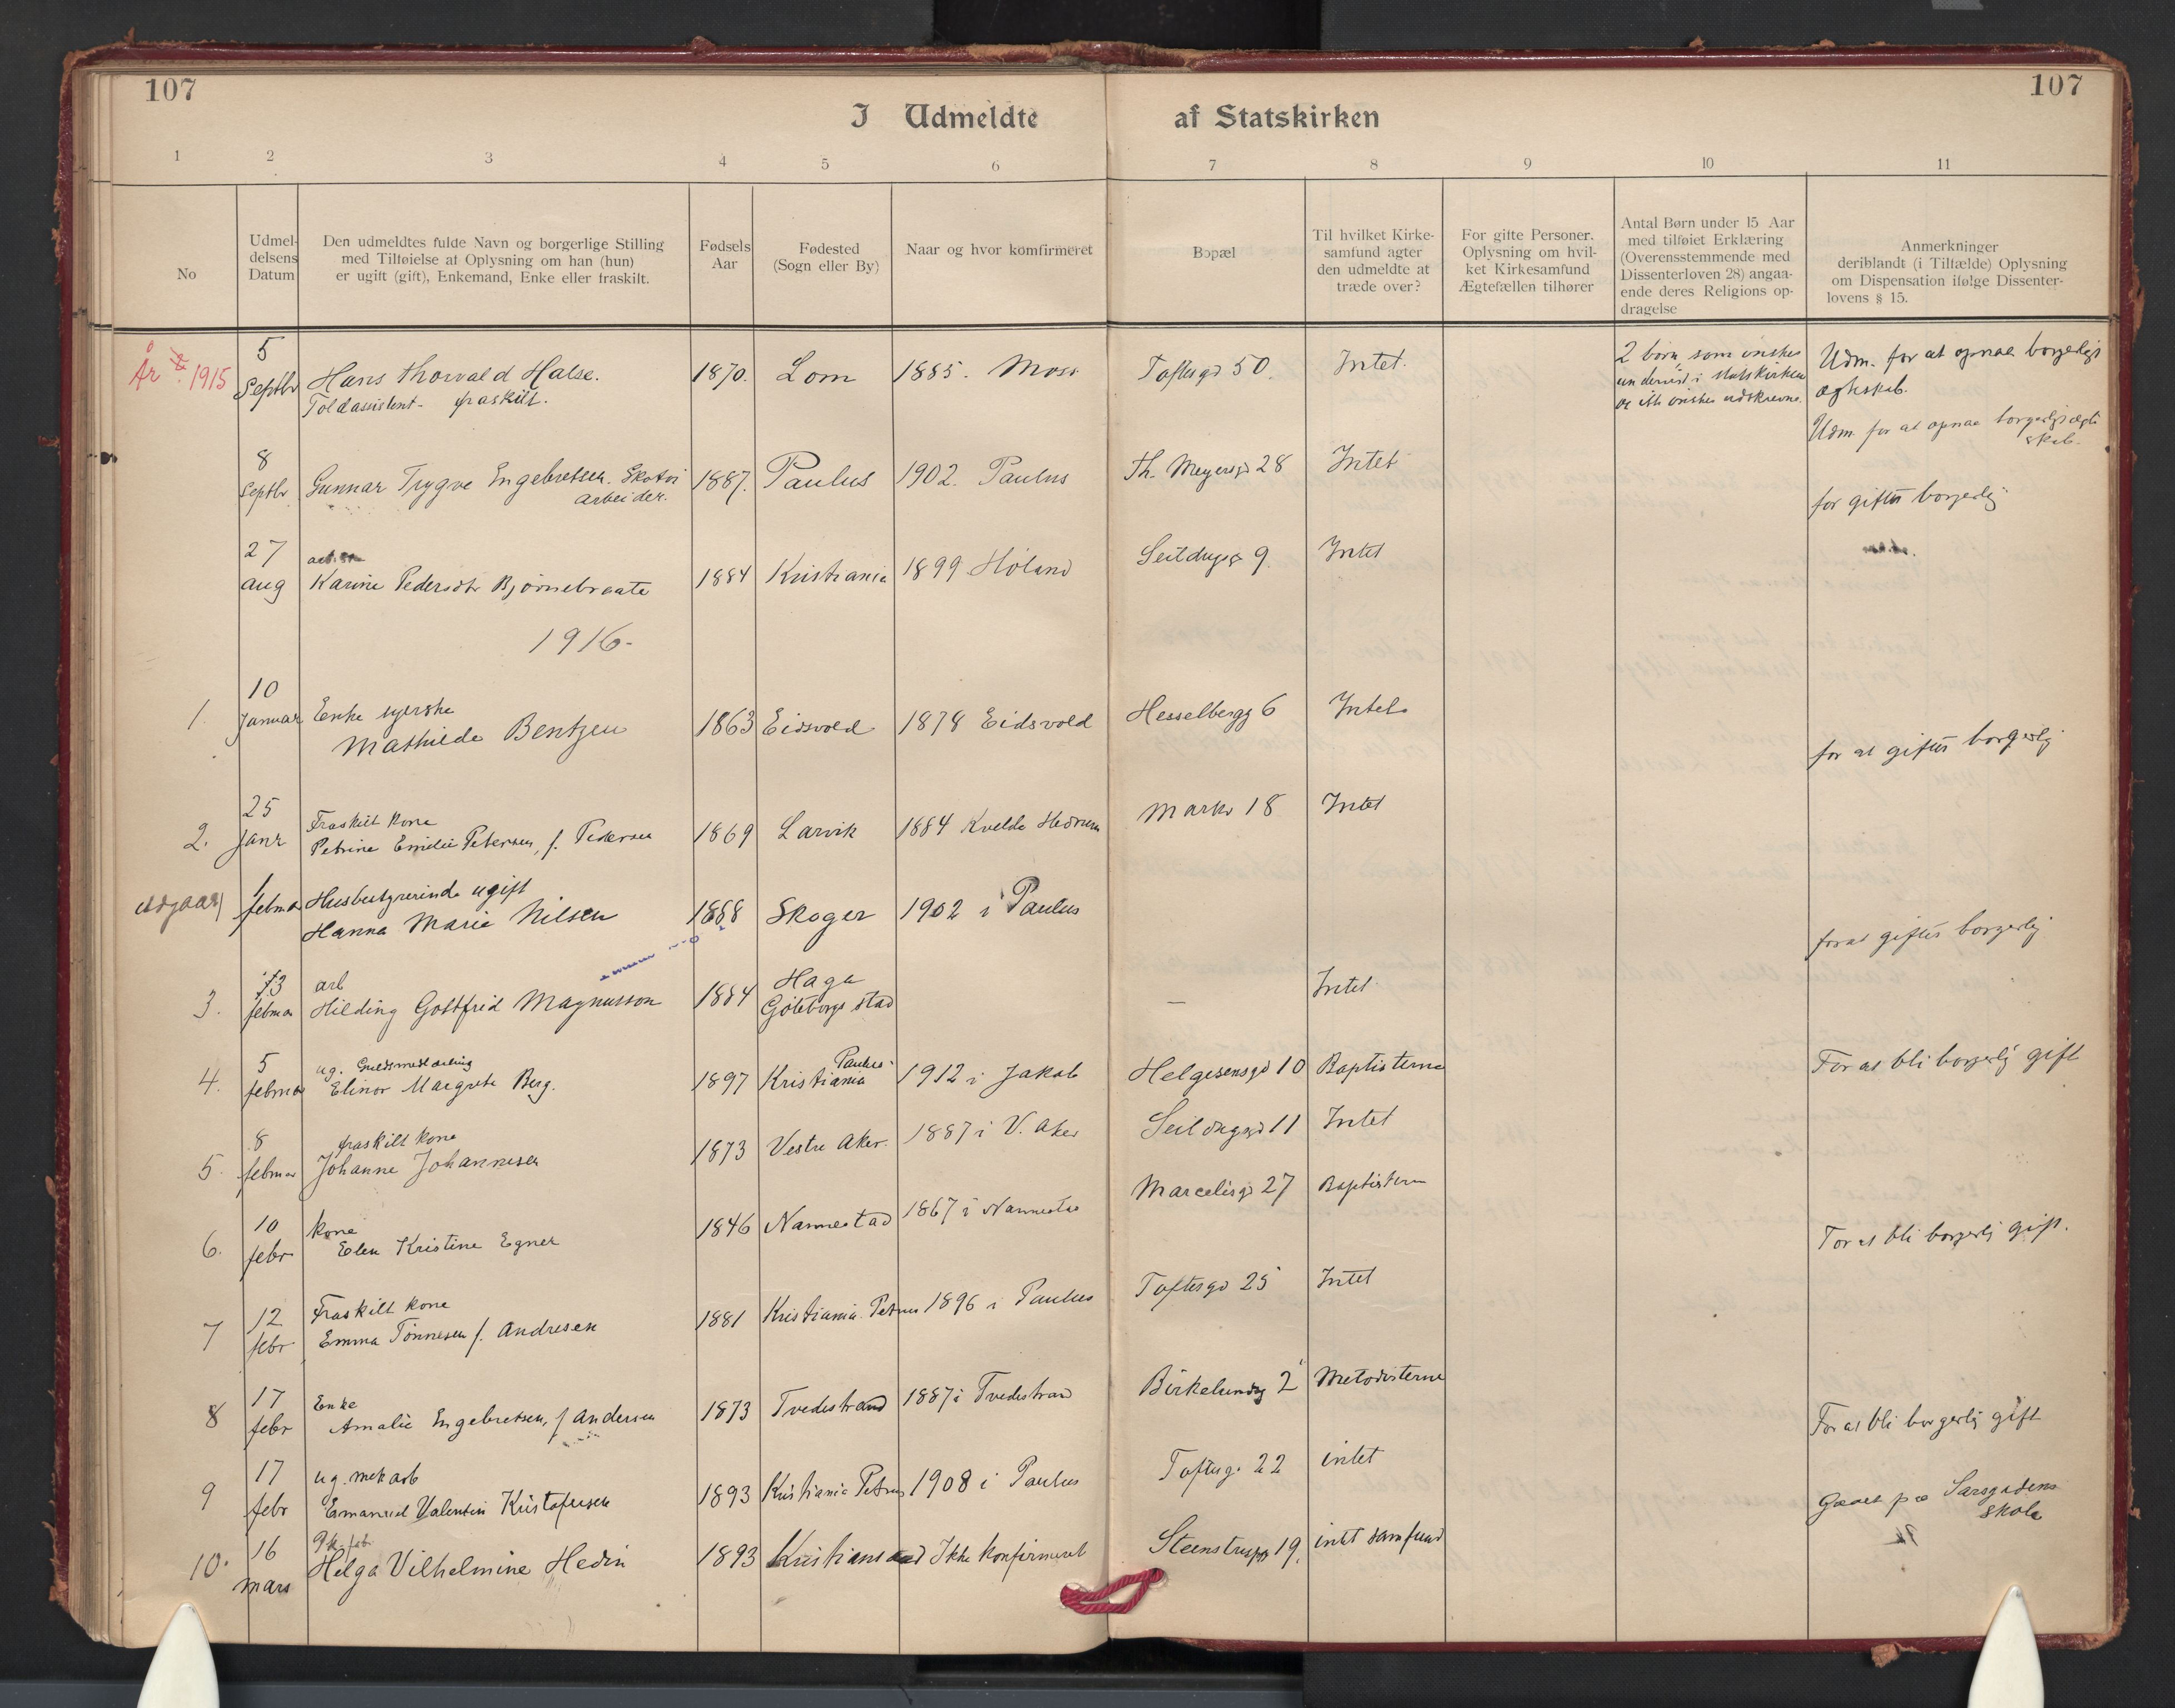 107
107
I Udmeldte af Statskirken
1 2 3 4 5 6 7 8 9 10 11
No
Udmel-
delsens
Datum
Den udmeldtes fulde Navn og borgerlige Stilling
med Tilføielse af Oplysning om han (hun)
er ugift (gift), Enkemand, Enke eller fraskilt.
Fødsels
Aar
Fødested
(Sogn eller By)
Naar og hvor komfirmeret
Bopæl
Til hvilket Kirke-
samfund agter
den udmeldte at
træde over?
For gifte Personer.
Oplysning om hvil-
ket Kirkesamfund
Ægtefællen tilhører
Antal Børn under 15 Aar
med tilføiet Erklæring
(Overensstemmende med
Dissenterloven 28) angaa-
ende deres Religions op-
dragelse
Anmerkninger
deriblandt (i Tilfælde) Oplysning
om Dispensation ifølge Dissenter-
lovens § 15.
År 1915
5
Septbr
Hans Thorvald Halse.
Toldassistent - fraskilt.
1870. Lom 1885. Moss Toftesgd 50. Intet.
2 børn som ønskes
undervist i statskirken
og ikke ønskes udskrevne.
Udm. for at opnaa borgerligt
ægteskab.
8
Septbr
Gunnar Trygve Engebretsen. Skotøi
arbeider.
1887. Paulus 1902. Paulus Th. Meyersgd 28 Intet
Udm. for at opnaa borgerligt ægte
skab.
27
aug
Karine Pedersdtr Bjørnebraate
1884 Kristiania 1899 Høland Seildugsg 9. Intet
for giftes borgerlig
1916-
1.
10
Januar
Enke syerske
Mathilde Bentzen
1863 Eidsvold 1878 Eidsvold Hesselbergg 6 Intet
for at giftes borgerlig
2.
25
Janr
Fraskilt kone
Petrine Emilie Petersen, f. Pedersen
1869 Larvik 1884 Kvelde Hedrum Markv 18 Intet
udgaar
1
februar
Husbestyrerinde ugift
Hanna Marie Nilsen
1888 Skoger 1902 i Paulus
for at giftes borgerlig
3.
3
februar
arb
Hilding Gottfrid Magnusson
1884
Haga
Göteborgs stad
— Intet
4.
5
februar
ug.
Elinor Margrete Berg.
1897
Paulus
Kristiania
1912 i Jakob Helgesensgd 10 Baptisterne
For at bli borgerlig gift
5.
8
februar
fraskilt kone
Johanne Johannesen
1873 Vestre Aker. 1887 i V. Aker Seildugsgd 11 Intet
6.
10
febr
kone
Elen Kristine Egner
1846 Nannestad 1867 i Nannestad Marcelisgd 27 Baptistern
For at bli borgerlig gift.
7
12
febr
Fraskilt kone
Emma Tønnesen f. Andresen
1881 Kristiania Petrus 1896 i Paulus Toftesgd 25 Intet
8
17
febr
Enke
Amalie Engebretsen, f Andersen
1873 Tvedestrand 1887 i Tvedestrand Birkelundsg 2 Metodisterne
For at bli borgerlig gift
9
17
febr
ug. mek arb
Emanuel Valentin Kristofersen
1893 Kristiania Petrus 1908 i Paulus Toftesg. 22 intet
Gaaet paa Sarsgadens
skole
10.
16
mars
Helga Vilhelmine Hedin
1893 Kristiansand Ikke konfirmeret Steenstrupsg 19. intet samfund